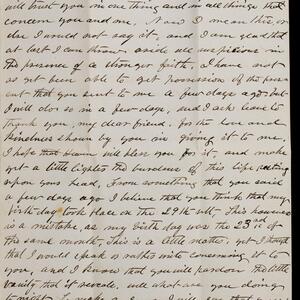 will trust you in one thing and in all things that
concern you and me. Now I mean this, or
else I would not say it, and I am glad that
at last I can throw aside all suspicions in
the presence of a stronger faith. I have not
as yet been able to get possession of the pres-
ent that you sent to me a few days ago but
I will do so in a few days, and I ask leave to
thank you, my dear friend, for the love and
kindness shown by you in giving it to me.
I hope that heaven will bless you for it, and make
yet a little lighter the burdens of this life resting
upon your head. From something that you said
a few days ago I believe that you think that my
birth day took place on the 29th ult. This however
is a mistake, as my birth day was the 23rd of
the same month. This is a little matter, yet I thought
that I would speak or rather write concerning it to
you, and I know that you will pardon the little
vanity that it reveals. Well what are you doing